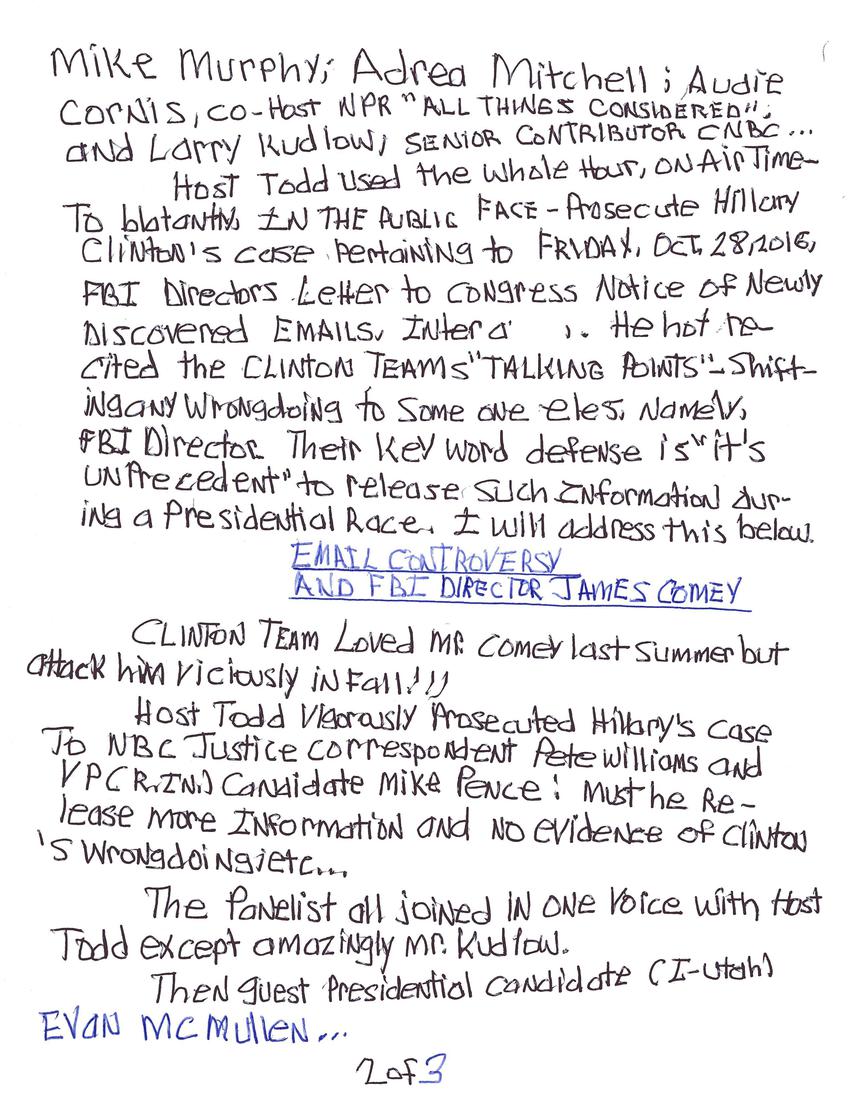 Mike Murphy; Adrea Mitchell; Audie
Cornis, co-Host NPR "ALL THINGS CONSIDERED";
and Larry Kudlow; SENIOR CONTRIBUTOR CNBC...
Host Todd used the whole Hour, ON Air Time-
To blatantly IN THE PUBLIC FACE - Prosecute Hillary
Clinton's case pertaining to FRIDAY, OCT. 28, 2016,
FBI Directors Letter to congress Notice of Newly
DISCOVERED EMAILS. Inter a He hot re-
cited the CLINTON TEAMS "TALKING POINTS" - Shift-
ing any wrongdoing to some one eles, Namely,
FBI Director. Their Key word defense is "it's
UNPrecedent" to release such Information dur-
ing a Presidential Race. I will address this below.
EMAIL CONTROVERSY
AND FBI DIRECTOR JAMES COMEY
CLINTON TEAM Loved MR. Comey last Summer but
attack him viciously in Fall!!!
Host Todd Vigorously Prosecuted Hillary's case
To NBC Justice correspondent Pete Williams and
VP (R.IN.) Candidate Mike Pence: Must he Re-
lease more Information and no evidence of Clinton
's Wrongdoing; etc...
The Panelist all joined IN ONE Voice with Host
Todd except amazingly Mr. Kudlow.
Then guest Presidential candidate (I-Utah)
EVAN MCMULLEN...
2 of 3